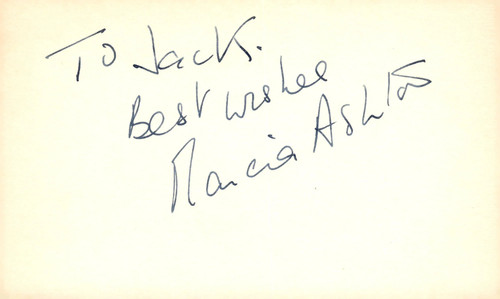 To Jack.
Best Wishes
Marcia Ashton